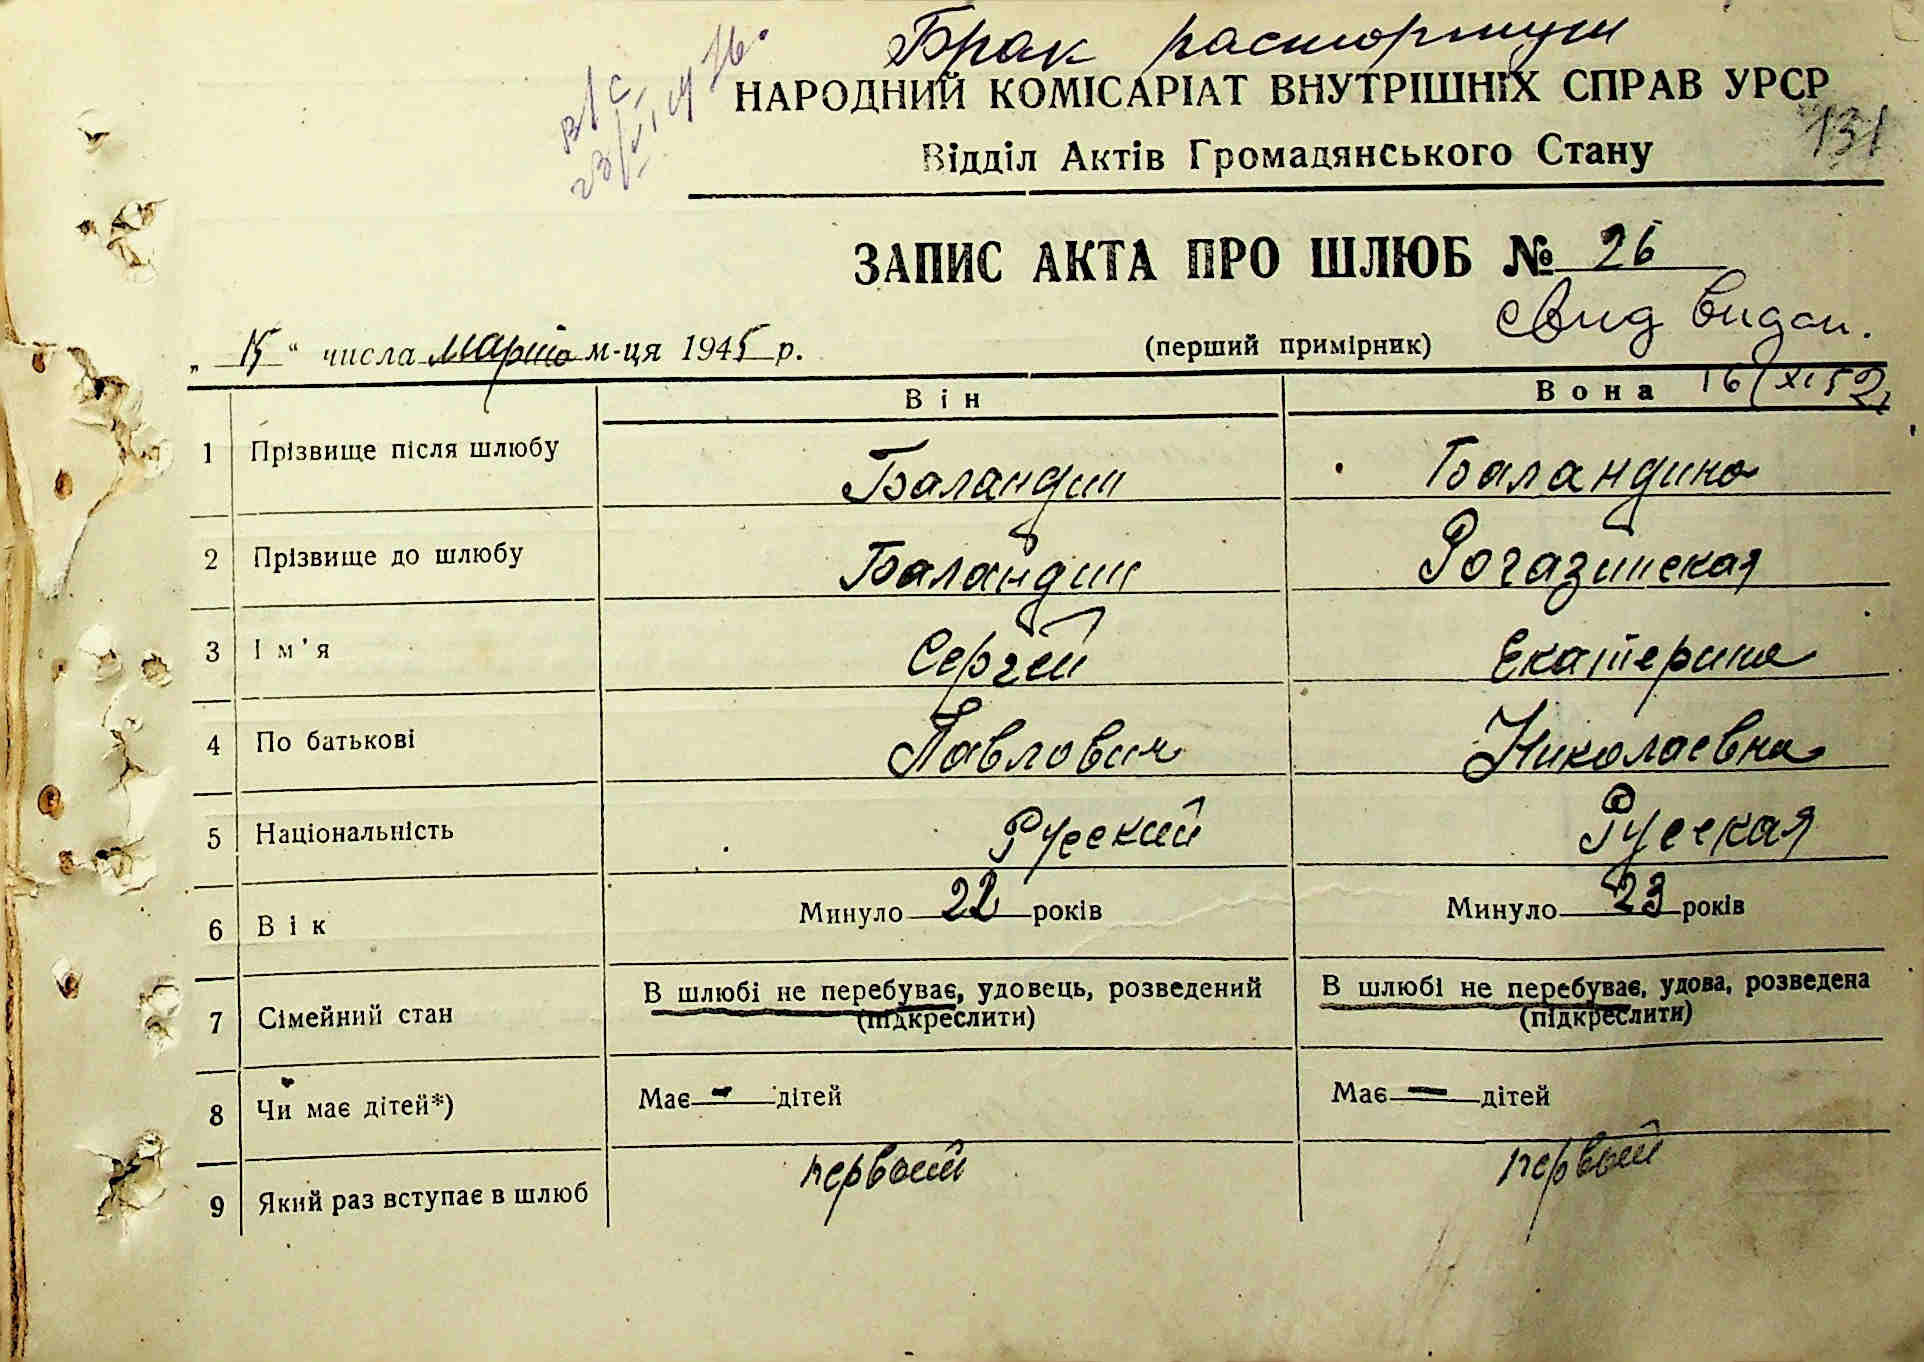 Брак расторгнут
НАРОДНИЙ КОМІСАРІАТ ВНУТРІШНІХ СПРАВ УРСР
131
Відділ Актів Громадянського Стану
ЗАПИС АКТА ПРО ШЛЮБ № 26
„15“ числа марта м-ця 1945 р.
(перший примірник)
видан.
Він
Вона
16/XI 52
1 Прізвище після шлюбу Баландин Баландина
2 Прізвище до шлюбу Баландин Рогазинская
3 Ім'я Сергей Екатерина
4 По батькові Павлович Николаевна
5 Національність Русский Русская
6 Вік Минуло 22 років Минуло 23 років
7 Сімейний стан В шлюбі не перебуває, удовець, розведений (підкреслити) В шлюбі не перебуває, удова, розведена (підкреслити)
8 Чи має дітей*) Має - дітей Має - дітей
9 Який раз вступає в шлюб первый первый